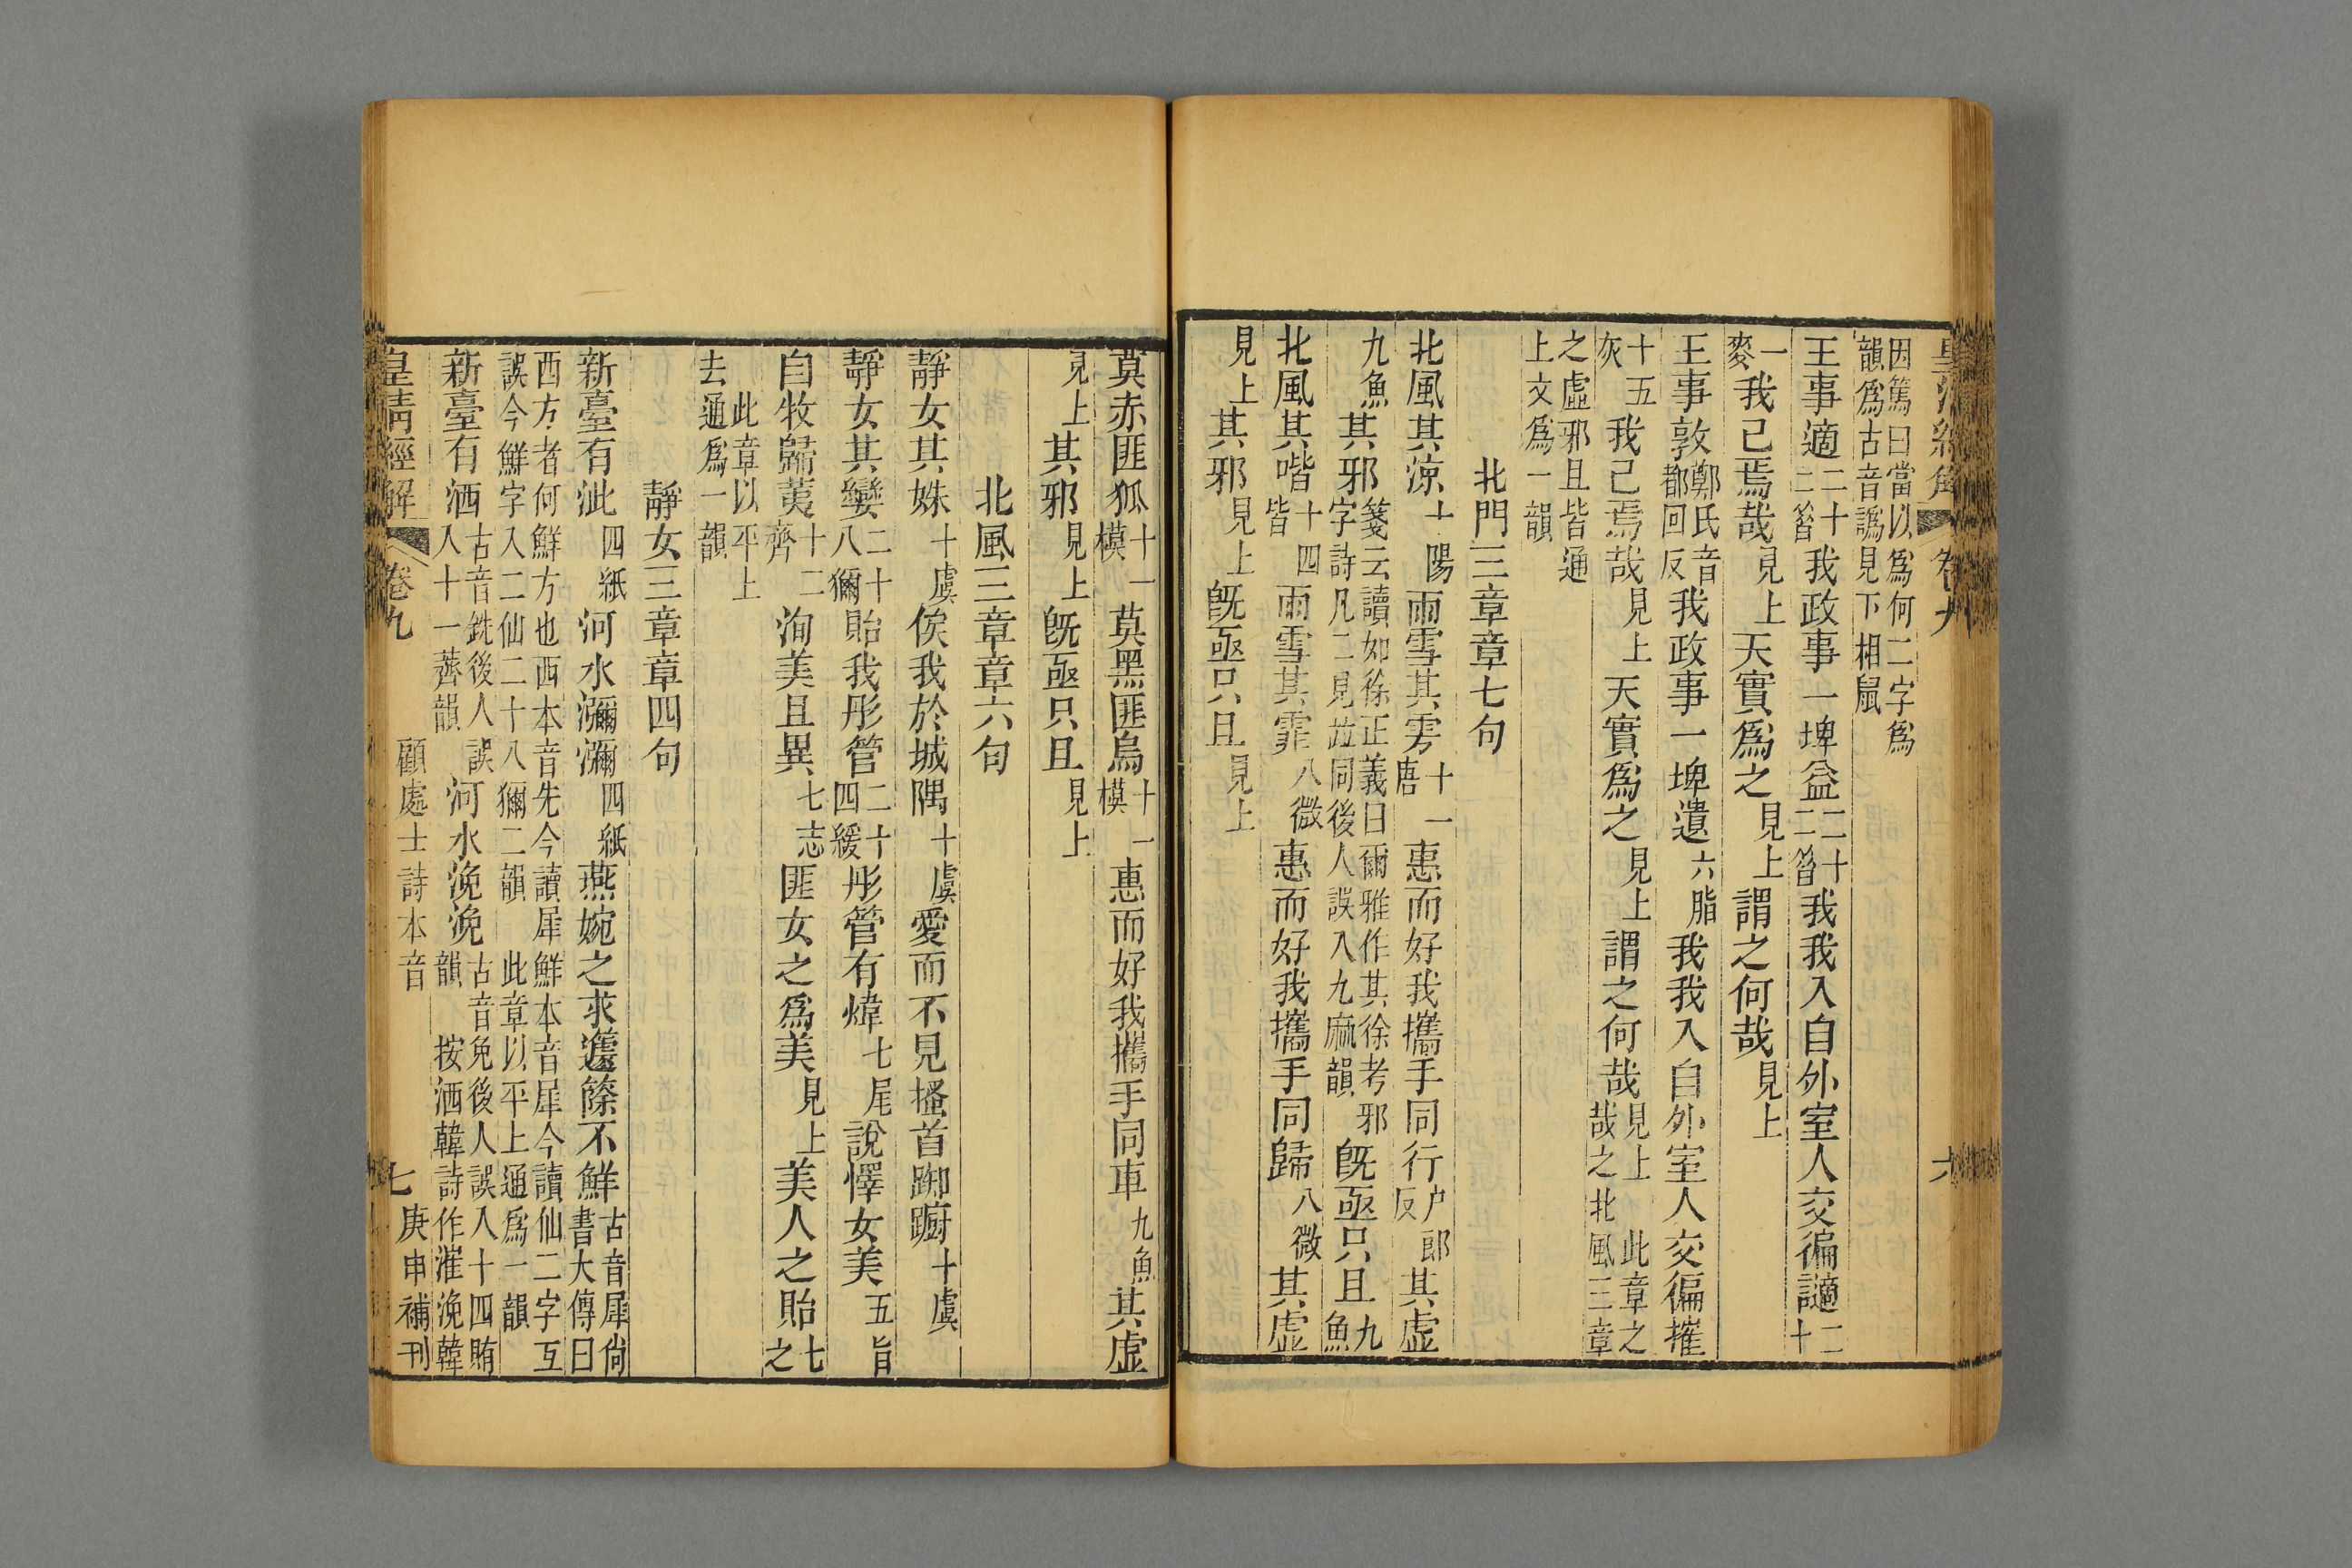 皇清經解 卷九 六
因篤曰當以爲何二字爲韻爲古音譌見下相鼠
王事適二十二昔我政事一埤益二十二昔我我入自外室人交徧讁二十
一麥我已焉哉見上天實爲之見上謂之何哉見上
王事敦鄭氏音都回反我政事一埤遺六脂我我入自外室人交徧摧
十五灰我已焉哉見上天實爲之見上謂之何哉見上 此章之哉之北風三章
之虛邪且皆通上文爲一韻
北門三章章七句
北風其涼十陽雨雪其雱十一唐惠而好我攜手同行户郎反其虛
九魚其邪箋云讀如徐正義曰爾雅作其徐考邪字詩凡二見竝同後人誤入九麻韻旣亟只且九魚
北風其喈十四皆雨雪其霏八微惠而好我攜手同歸八微其虛
見上其邪見上旣亟只且見上
莫赤匪狐十一模莫黑匪烏十一模惠而好我攜手同車九魚其虛
見上其邪見上旣亟只且見上
北風三章章六句
靜女其姝十虞俟我於城隅十虞愛而不見搔首踟躕十虞
靜女其孌二十八獮貽我彤管二十四緩彤管有煒七尾說懌女美五旨
自牧歸荑十二齊洵美且異七志匪女之爲美見上美人之貽七之
此章以平上去通爲一韻
靜女三章章四句
新臺有泚四紙河水瀰瀰四紙燕婉之求籧篨不鮮古音犀尙書大傳曰
西方者何鮮方也西本音先今讀犀鮮本音犀今讀仙二字互誤今鮮字入二仙二十八獮二韻 此章以平上通爲一韻
新臺有洒古音銑後人誤入十一薺韻河水浼浼古音免後人誤入十四賄韻 按洒韓詩作漼浼韓
皇清經解 卷九 顧處士詩本音 七 庚申補刊